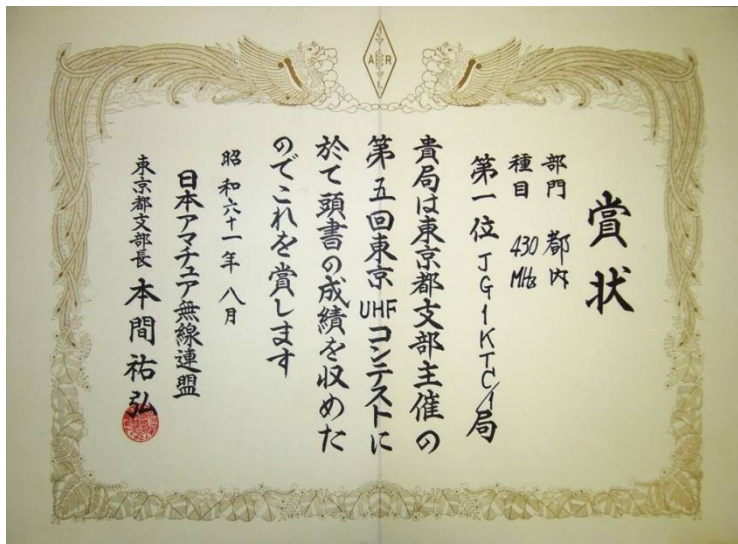 賞状
部門 都内
種目 430MHz
第一位 JG1KTC/1局
貴局は東京都支部主催の
第五回東京UHFコンテストに
於て頭書の成績を収めた
のでこれを賞します
昭和六十一年 八月
日本アマチュア無線連盟
東京都支部長 本間祐弘